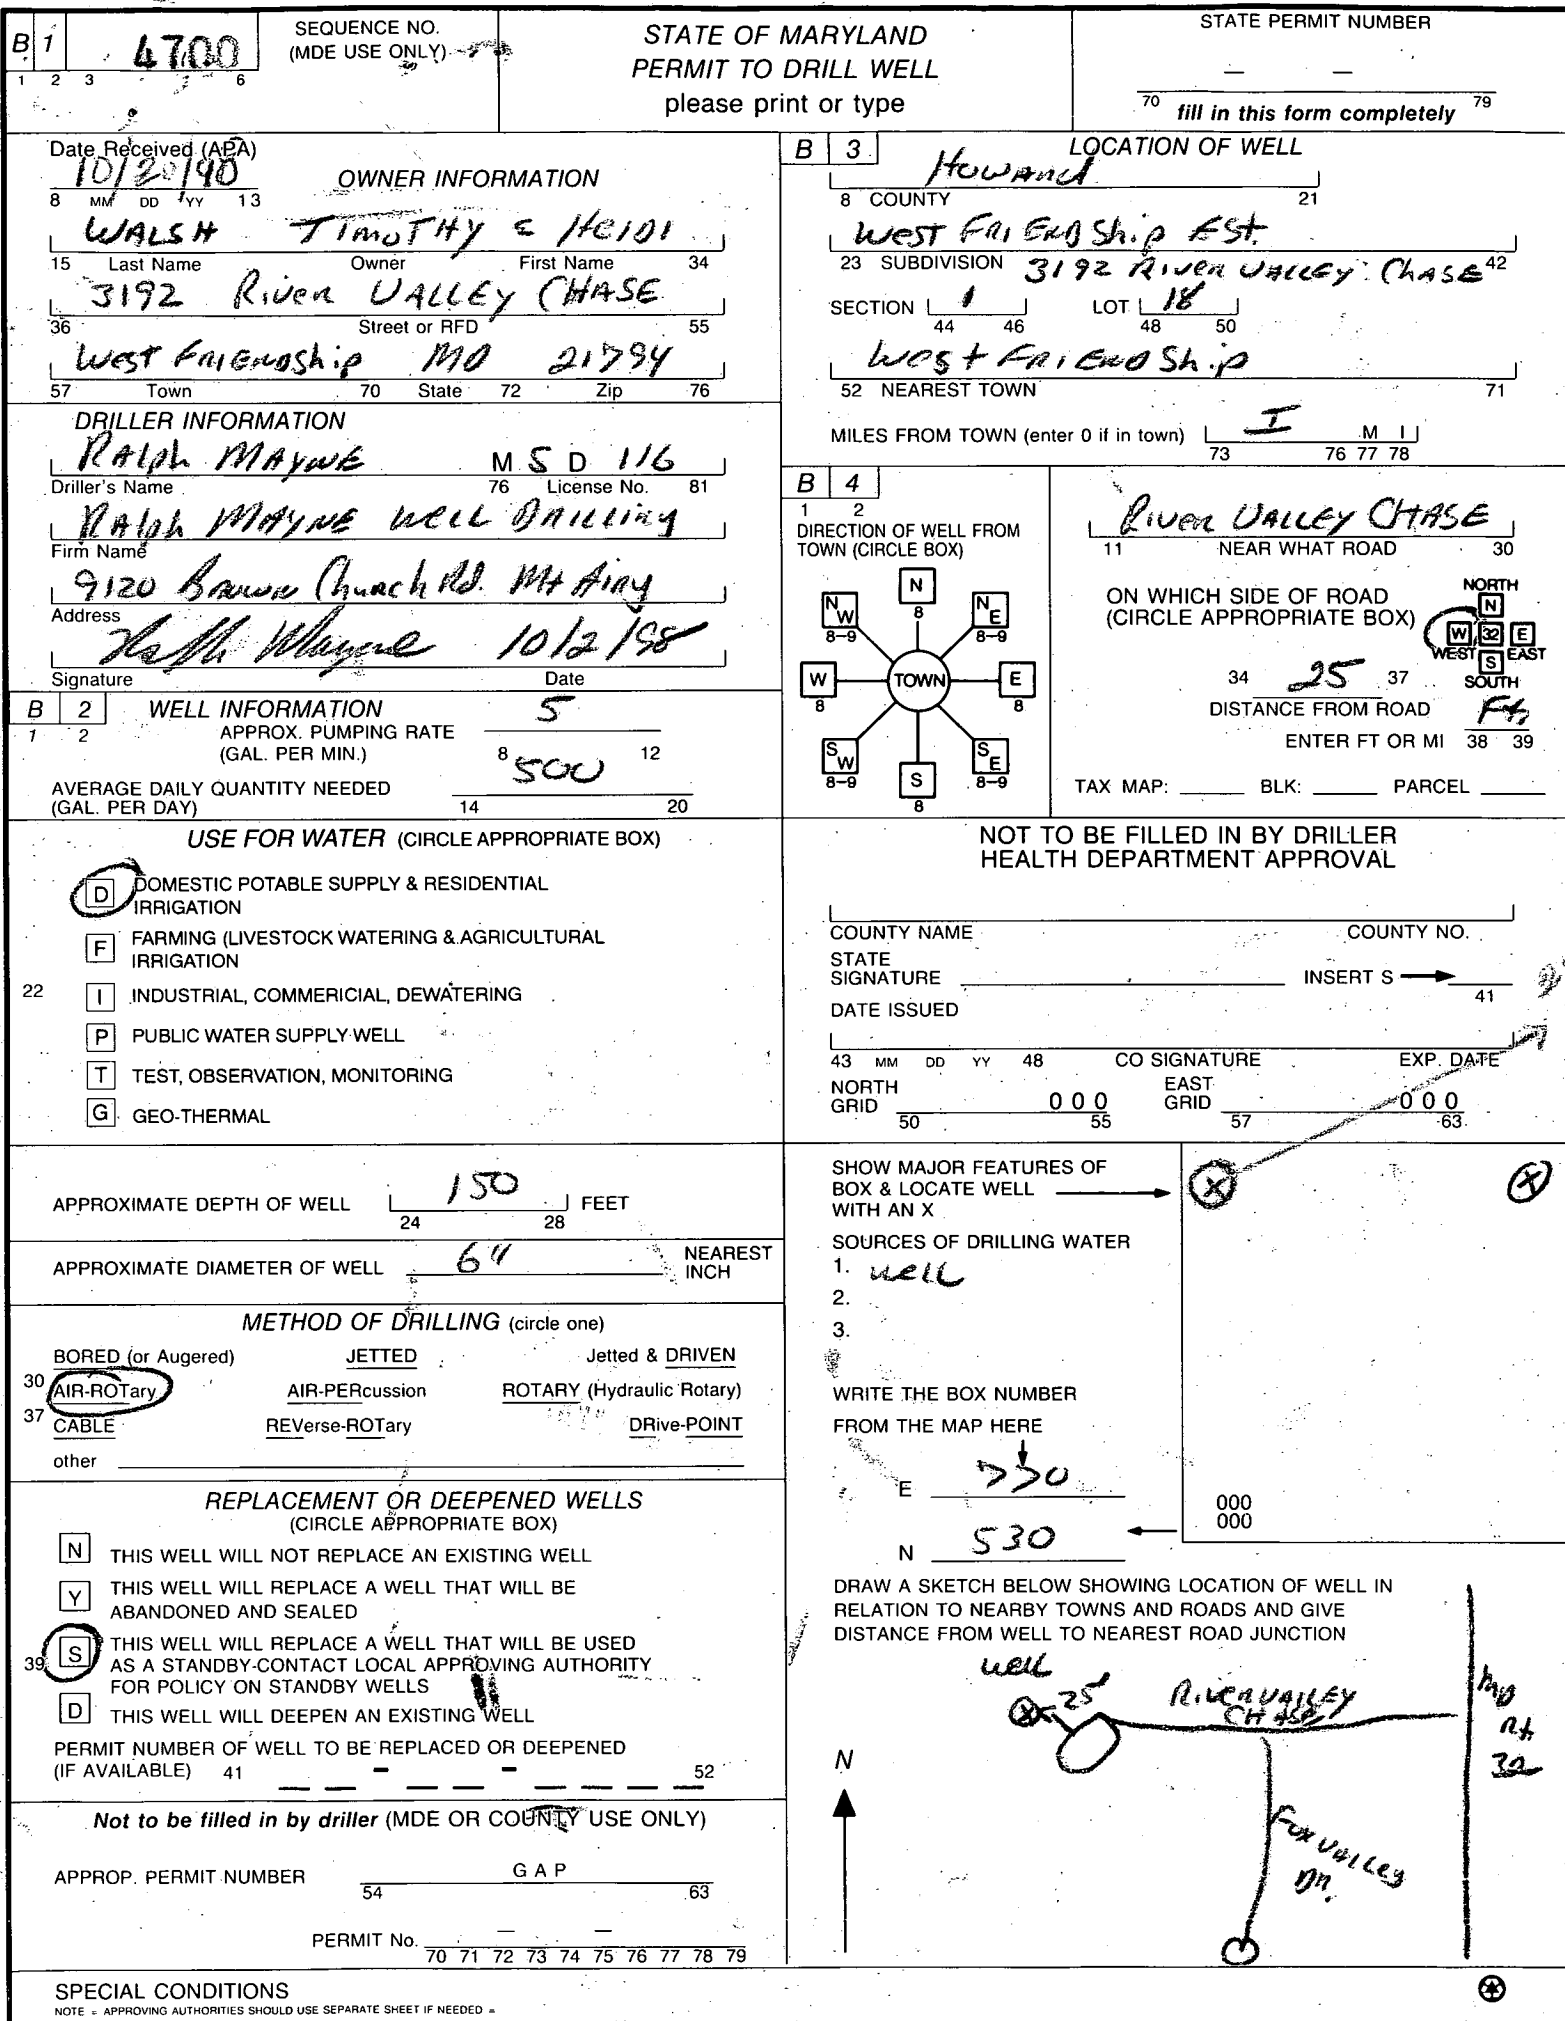 B 1 4700
1 2 3 6
SEQUENCE NO.
(MDE USE ONLY)
STATE OF MARYLAND
PERMIT TO DRILL WELL
please print or type
STATE PERMIT NUMBER
– –
70 fill in this form completely 79
Date Received (APA)
8 MM DD YY 13
OWNER INFORMATION
WALSH TIMOTHY & HEIDI
15 Last Name Owner First Name 34
3192 River VALLEY CHASE
36 Street or RFD 55
West FRIENDShip MD 21794
57 Town 70 State 72 Zip 76
DRILLER INFORMATION
RAlph MAYNE M S D 116
Driller's Name 76 License No. 81
RAlph MAYNE Well Drilling
Firm Name
9120 Brown Church Rd. Mt Airy
Address
Ralph Mayne 10/2/98
Signature Date
B 2 WELL INFORMATION
1 2
APPROX. PUMPING RATE 5
(GAL. PER MIN.) 8 12
AVERAGE DAILY QUANTITY NEEDED 500
(GAL. PER DAY) 14 20
USE FOR WATER (CIRCLE APPROPRIATE BOX)
D DOMESTIC POTABLE SUPPLY & RESIDENTIAL
IRRIGATION
F FARMING (LIVESTOCK WATERING & AGRICULTURAL
IRRIGATION
22 I INDUSTRIAL, COMMERICIAL, DEWATERING
P PUBLIC WATER SUPPLY WELL
T TEST, OBSERVATION, MONITORING
G GEO-THERMAL
APPROXIMATE DEPTH OF WELL 150 FEET
24 28
APPROXIMATE DIAMETER OF WELL 6" NEAREST
INCH
METHOD OF DRILLING (circle one)
BORED (or Augered) JETTED Jetted & DRIVEN
30 AIR-ROTary AIR-PERcussion ROTARY (Hydraulic Rotary)
37 CABLE REVerse-ROTary DRive-POINT
other
REPLACEMENT OR DEEPENED WELLS
(CIRCLE APPROPRIATE BOX)
N THIS WELL WILL NOT REPLACE AN EXISTING WELL
Y THIS WELL WILL REPLACE A WELL THAT WILL BE
ABANDONED AND SEALED
39 S THIS WELL WILL REPLACE A WELL THAT WILL BE USED
AS A STANDBY-CONTACT LOCAL APPROVING AUTHORITY
FOR POLICY ON STANDBY WELLS
D THIS WELL WILL DEEPEN AN EXISTING WELL
PERMIT NUMBER OF WELL TO BE REPLACED OR DEEPENED
(IF AVAILABLE) 41 – – 52
Not to be filled in by driller (MDE OR COUNTY USE ONLY)
APPROP. PERMIT NUMBER G A P
54 63
PERMIT No. – –
70 71 72 73 74 75 76 77 78 79
SPECIAL CONDITIONS
NOTE = APPROVING AUTHORITIES SHOULD USE SEPARATE SHEET IF NEEDED =
B 3 LOCATION OF WELL
Howard
8 COUNTY 21
West FRIENDShip Est.
23 SUBDIVISION 3192 River VALLEY CHASE 42
SECTION 1 LOT 18
44 46 48 50
West FRIENDShip
52 NEAREST TOWN 71
MILES FROM TOWN (enter 0 if in town) I M I
73 76 77 78
B 4
1 2
DIRECTION OF WELL FROM
TOWN (CIRCLE BOX)
N
8
NW NE
8–9 8–9
W TOWN E
8 8
SW SE
8–9 8–9
S
8
River VALLEY CHASE
11 NEAR WHAT ROAD 30
ON WHICH SIDE OF ROAD
(CIRCLE APPROPRIATE BOX)
NORTH
N
W 32 E
WEST S EAST
SOUTH
34 25 37
DISTANCE FROM ROAD Ft.
ENTER FT OR MI 38 39
TAX MAP: BLK: PARCEL
NOT TO BE FILLED IN BY DRILLER
HEALTH DEPARTMENT APPROVAL
COUNTY NAME COUNTY NO.
STATE
SIGNATURE INSERT S
41
DATE ISSUED
43 MM DD YY 48 CO SIGNATURE EXP. DATE
NORTH
GRID 0 0 0
50 55
EAST
GRID 0 0 0
57 63
SHOW MAJOR FEATURES OF
BOX & LOCATE WELL
WITH AN X
X X
SOURCES OF DRILLING WATER
1. Well
2.
3.
WRITE THE BOX NUMBER
FROM THE MAP HERE
E 770
N 530
000
000
DRAW A SKETCH BELOW SHOWING LOCATION OF WELL IN
RELATION TO NEARBY TOWNS AND ROADS AND GIVE
DISTANCE FROM WELL TO NEAREST ROAD JUNCTION
well
X 25'
RIVER VALLEY
CHASE
MD
Rt
32
N
Fox VALLEY
Dr.